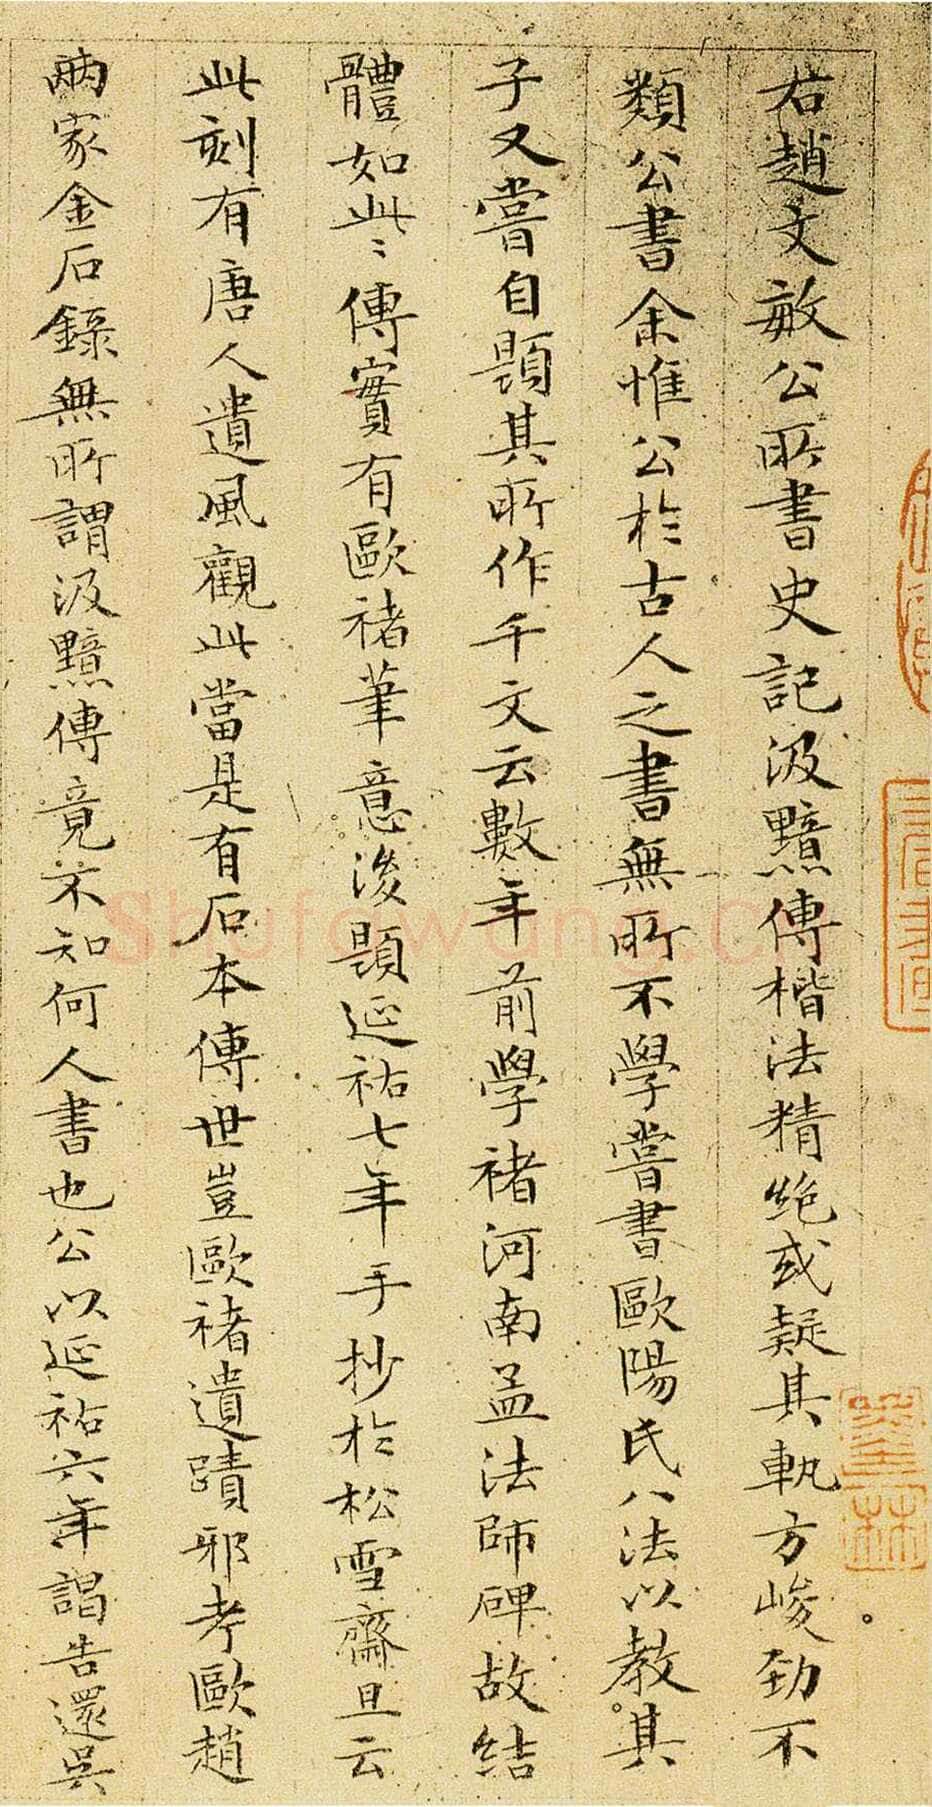 右趙文敏公所書史記汲黯傳楷法精絕或疑其軌方峻勁不
類公書余惟公於古人之書無所不學嘗書歐陽氏八法以教其
子又嘗自題其所作千文云數年前學褚河南孟法師碑故結
體如此此傳實有歐褚筆意後題延祐七年手抄於松雪齋且云
此刻有唐人遺風觀此當是有石本傳世豈歐褚遺蹟邪考歐趙
兩家金石錄無所謂汲黯傳竟不知何人書也公以延祐六年謁告還吳